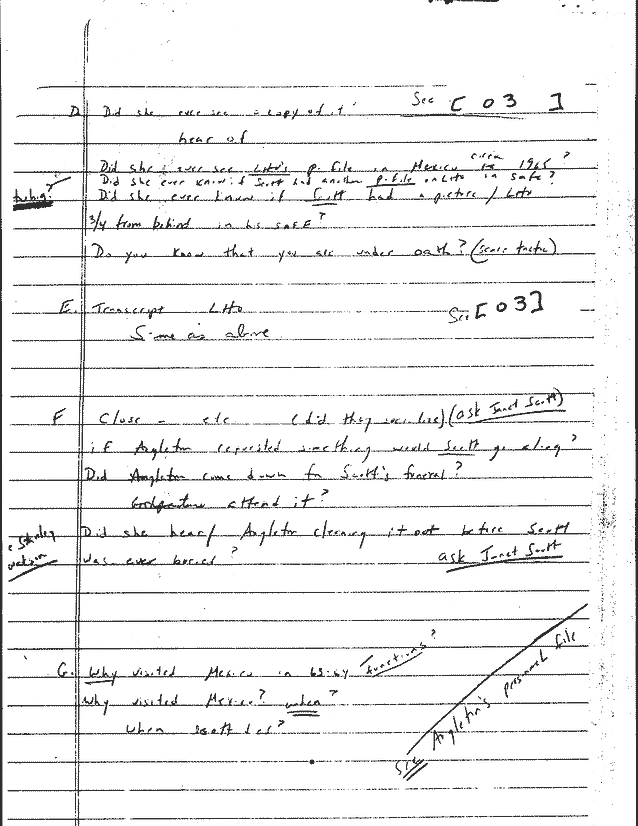 D. Did she ever see a copy of it? See [03]
hear of
Did she ever see LHO's p. file in Mexico circa 1965?
Did she ever know if Scott had another p. file on LHO in safe?
Did she ever know if Scott had a picture / LHO
3/4 from behind in his SAFE?
Do you know that you are under oath? (scare tactic)
E. Transcript LHO See [03]
Same as above
F Close - etc (did they socialize) (ask Janet Scott)
if Angleton requested something would Scott go along?
Did Angleton come down for Scott's funeral?
Goodpasture attend it?
Did she hear / Angleton cleaning it out before Scott
was ever buried? ask Janet Scott
Stanley
Watson
G. Why visited Mexico in 63-64 functions?
Why visited Mexico? when?
when Scott
See Angleton's personnel file